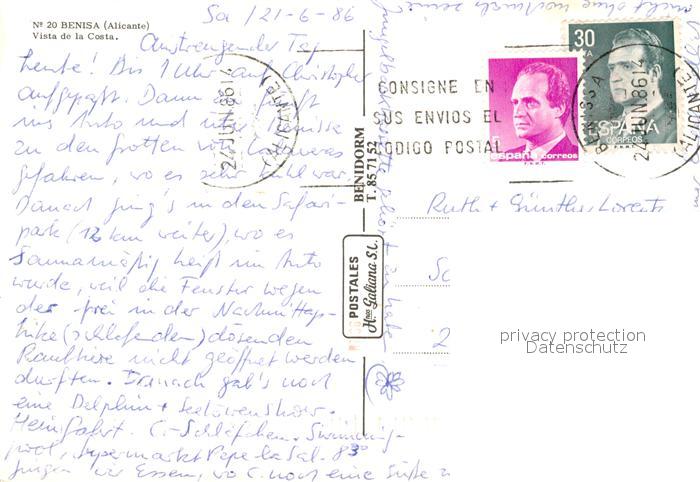 Nº 20 BENISA (Alicante)
Vista de la Costa.
Sa /21-6-86
Anstrengender Tag
heute! Bis 1 Uhr auf Christopher
aufgepaßt. Dann
ins Auto und
zu den Grotten von
gefahren, wo es sehr kühl war.
Danach ging's in den Safari-
park (12 km weiter), wo es
saunamäßig heiß im Auto
wurde, weil die Fenster wegen
der frei in der Nachmittags-
hitze (schlafenden) dösenden
Raubtiere nicht geöffnet werden
durften. Danach gab's noch
eine Delphin + Seelöwenshow.
Heimfahrt. C.-Schläfchen. Swimming-
pool, Supermarkt Pepe la Sal. 8³⁰
gingen wir Essen, wo C. noch eine Süße
BENIDORM
T. 85 71 52
POSTALES
Hnos Galiana S.L.
CONSIGNE EN
SUS ENVIOS EL
CODIGO POSTAL
24 JUN 86 14
(ALICANTE)
españa correos
30
PTA
ESPAÑA
CORREOS
BENISSA
24 JUN 86 14
(ALICANTE)
Ruth + Günther Lorentz
privacy protection
Datenschutz